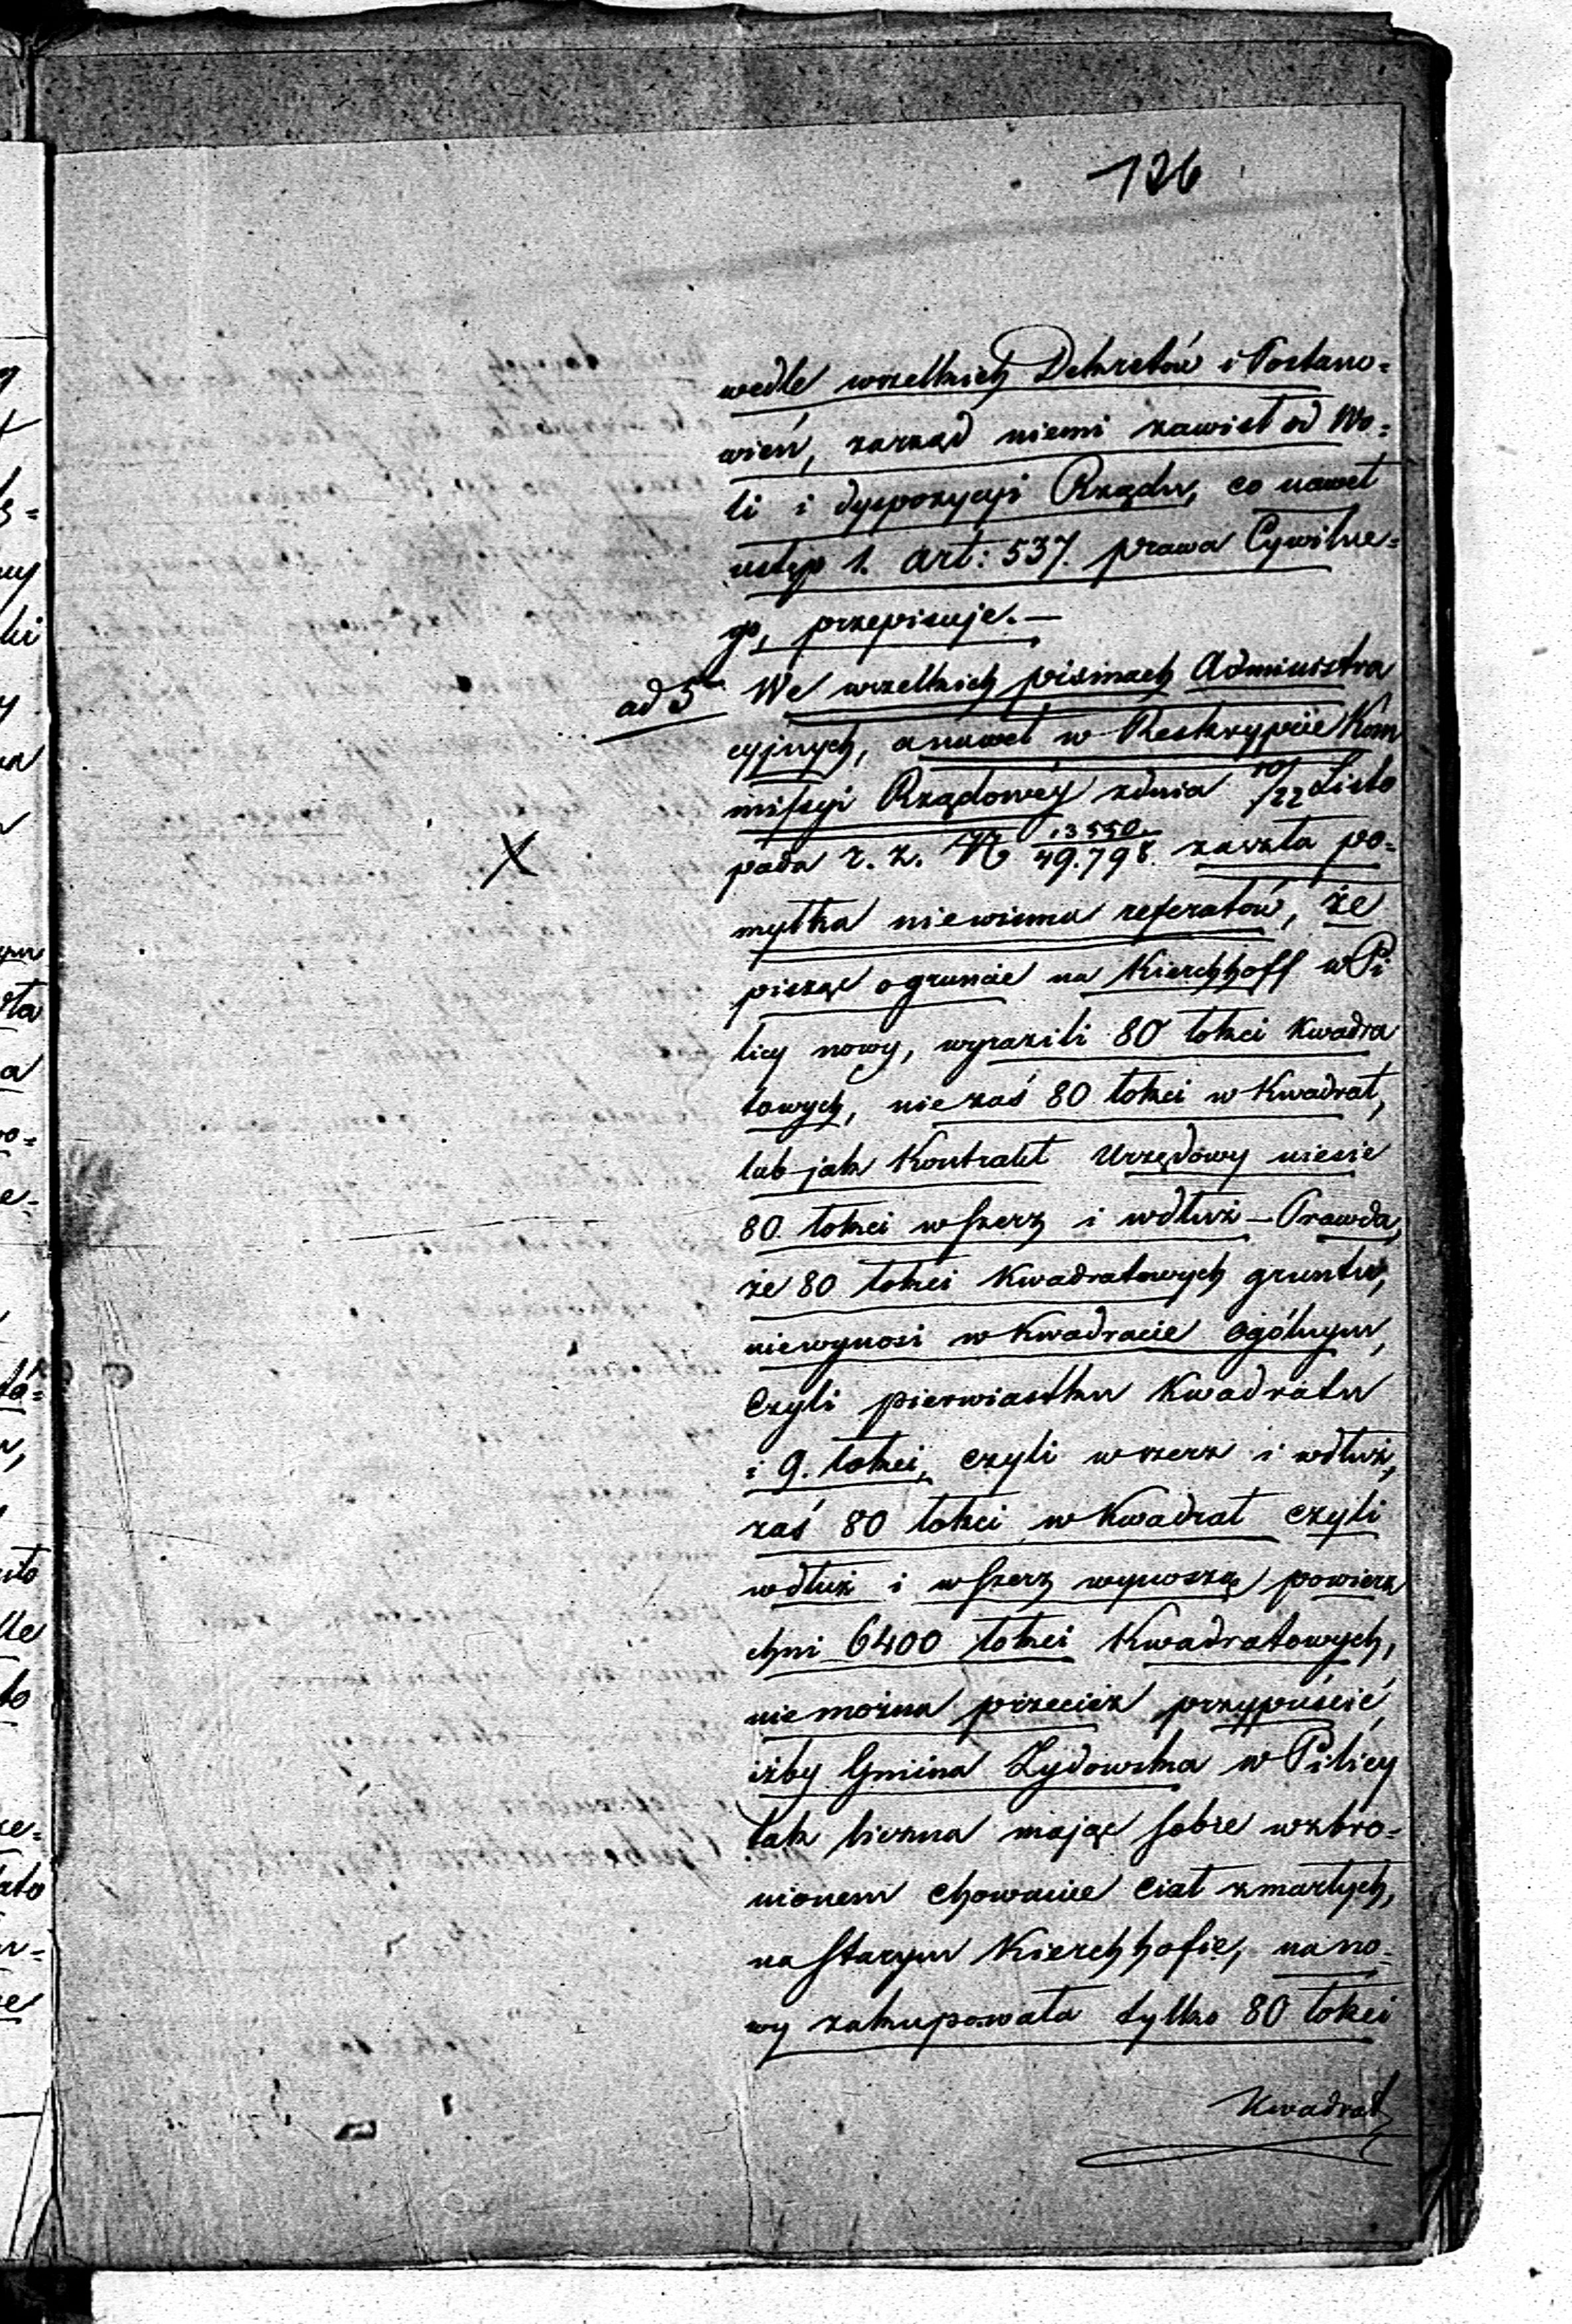 126
wedle wszelkich Dekretów i Postano=
wień, zarząd niemi zawisł od Wo=
li i dyspozycyi Rządu, co nawet
ustęp 1. art: 537. prawa Cywilne=
go, przepisuje.—
ad 5 We wszelkich pismach Administra
cyjnych, a nawet w Reskrypcie Kom
missyi Rządowéy zdnia 10/22 Listo
pada r. z. N 13550/49.798. zaszła po=
myłka niewinna referatów, że
pisząc o gruncie na Kierchhoff w Pi
licy nowy, wyrazili 80 łokci kwadra
towych, nie zaś 80 łokci w kwadrat,
lub jak Kontrakt Urzędowy niesie
80 łokci wszerz i wdłuż – Prawda,
że 80 łokci kwadratowych gruntu,
niewynosi w kwadracie ogólnym,
czyli pierwiastku kwadratu
i 9. łokci, czyli wszerz i wdłuż,
zaś 80 łokci w kwadrat czyli
wdłuż i wszerz wynoszą powierz
chni 6400 łokci kwadratowych,
nie można przecież przypuścić,
iżby Gmina Żydowska w Pilicy
tak liczna mając sobie wzbro=
nionem chowanie ciał zmarłych,
na starym Kierchhofie, na no=
wy zakupowała tylko 80 łokci
kwadrat